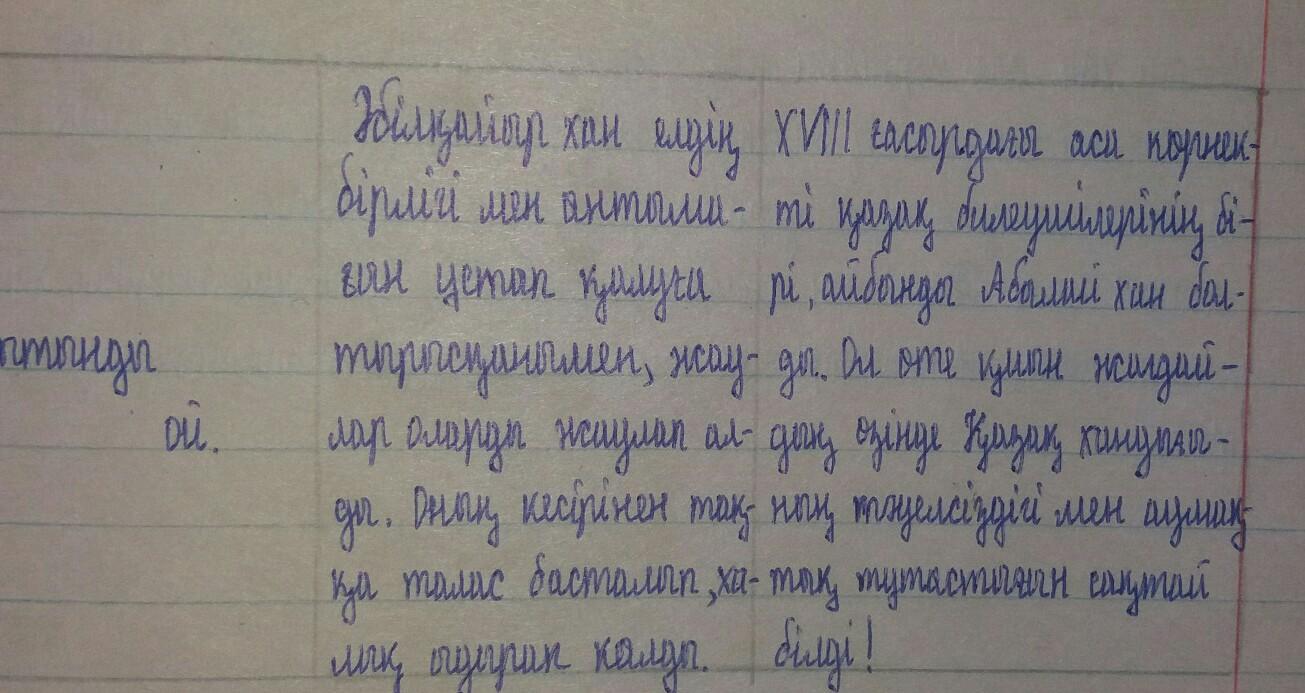 Әбілқайыр хан елдің
бірлігі мен ынтыма-
ғын ұстап қалуға
тырысқанымен, жау-
лар оларды жаулап ал-
ды. Оның кесірінен тақ-
қа талас басталып, ха-
лық ыдырап калды.
XVIII ғасырдағы аса көрнек-
ті қазақ билеушілерінің бі-
рі, айбынды Абылай хан бол-
ды. Ол өте қиын жағдай-
дың өзінде Қазақ хандығы-
ның тәуелсіздігі мен аумақ-
тық тұтастығын сақтай
білді!
ытынды
ой.